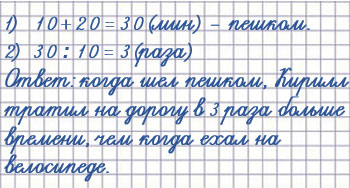 1) 10+20=30(мин) - пешком.
2) 30:10=3(раза)
Ответ: когда шел пешком, Кирилл
тратил на дорогу в 3 раза больше
времени, чем когда ехал на
велосипеде.